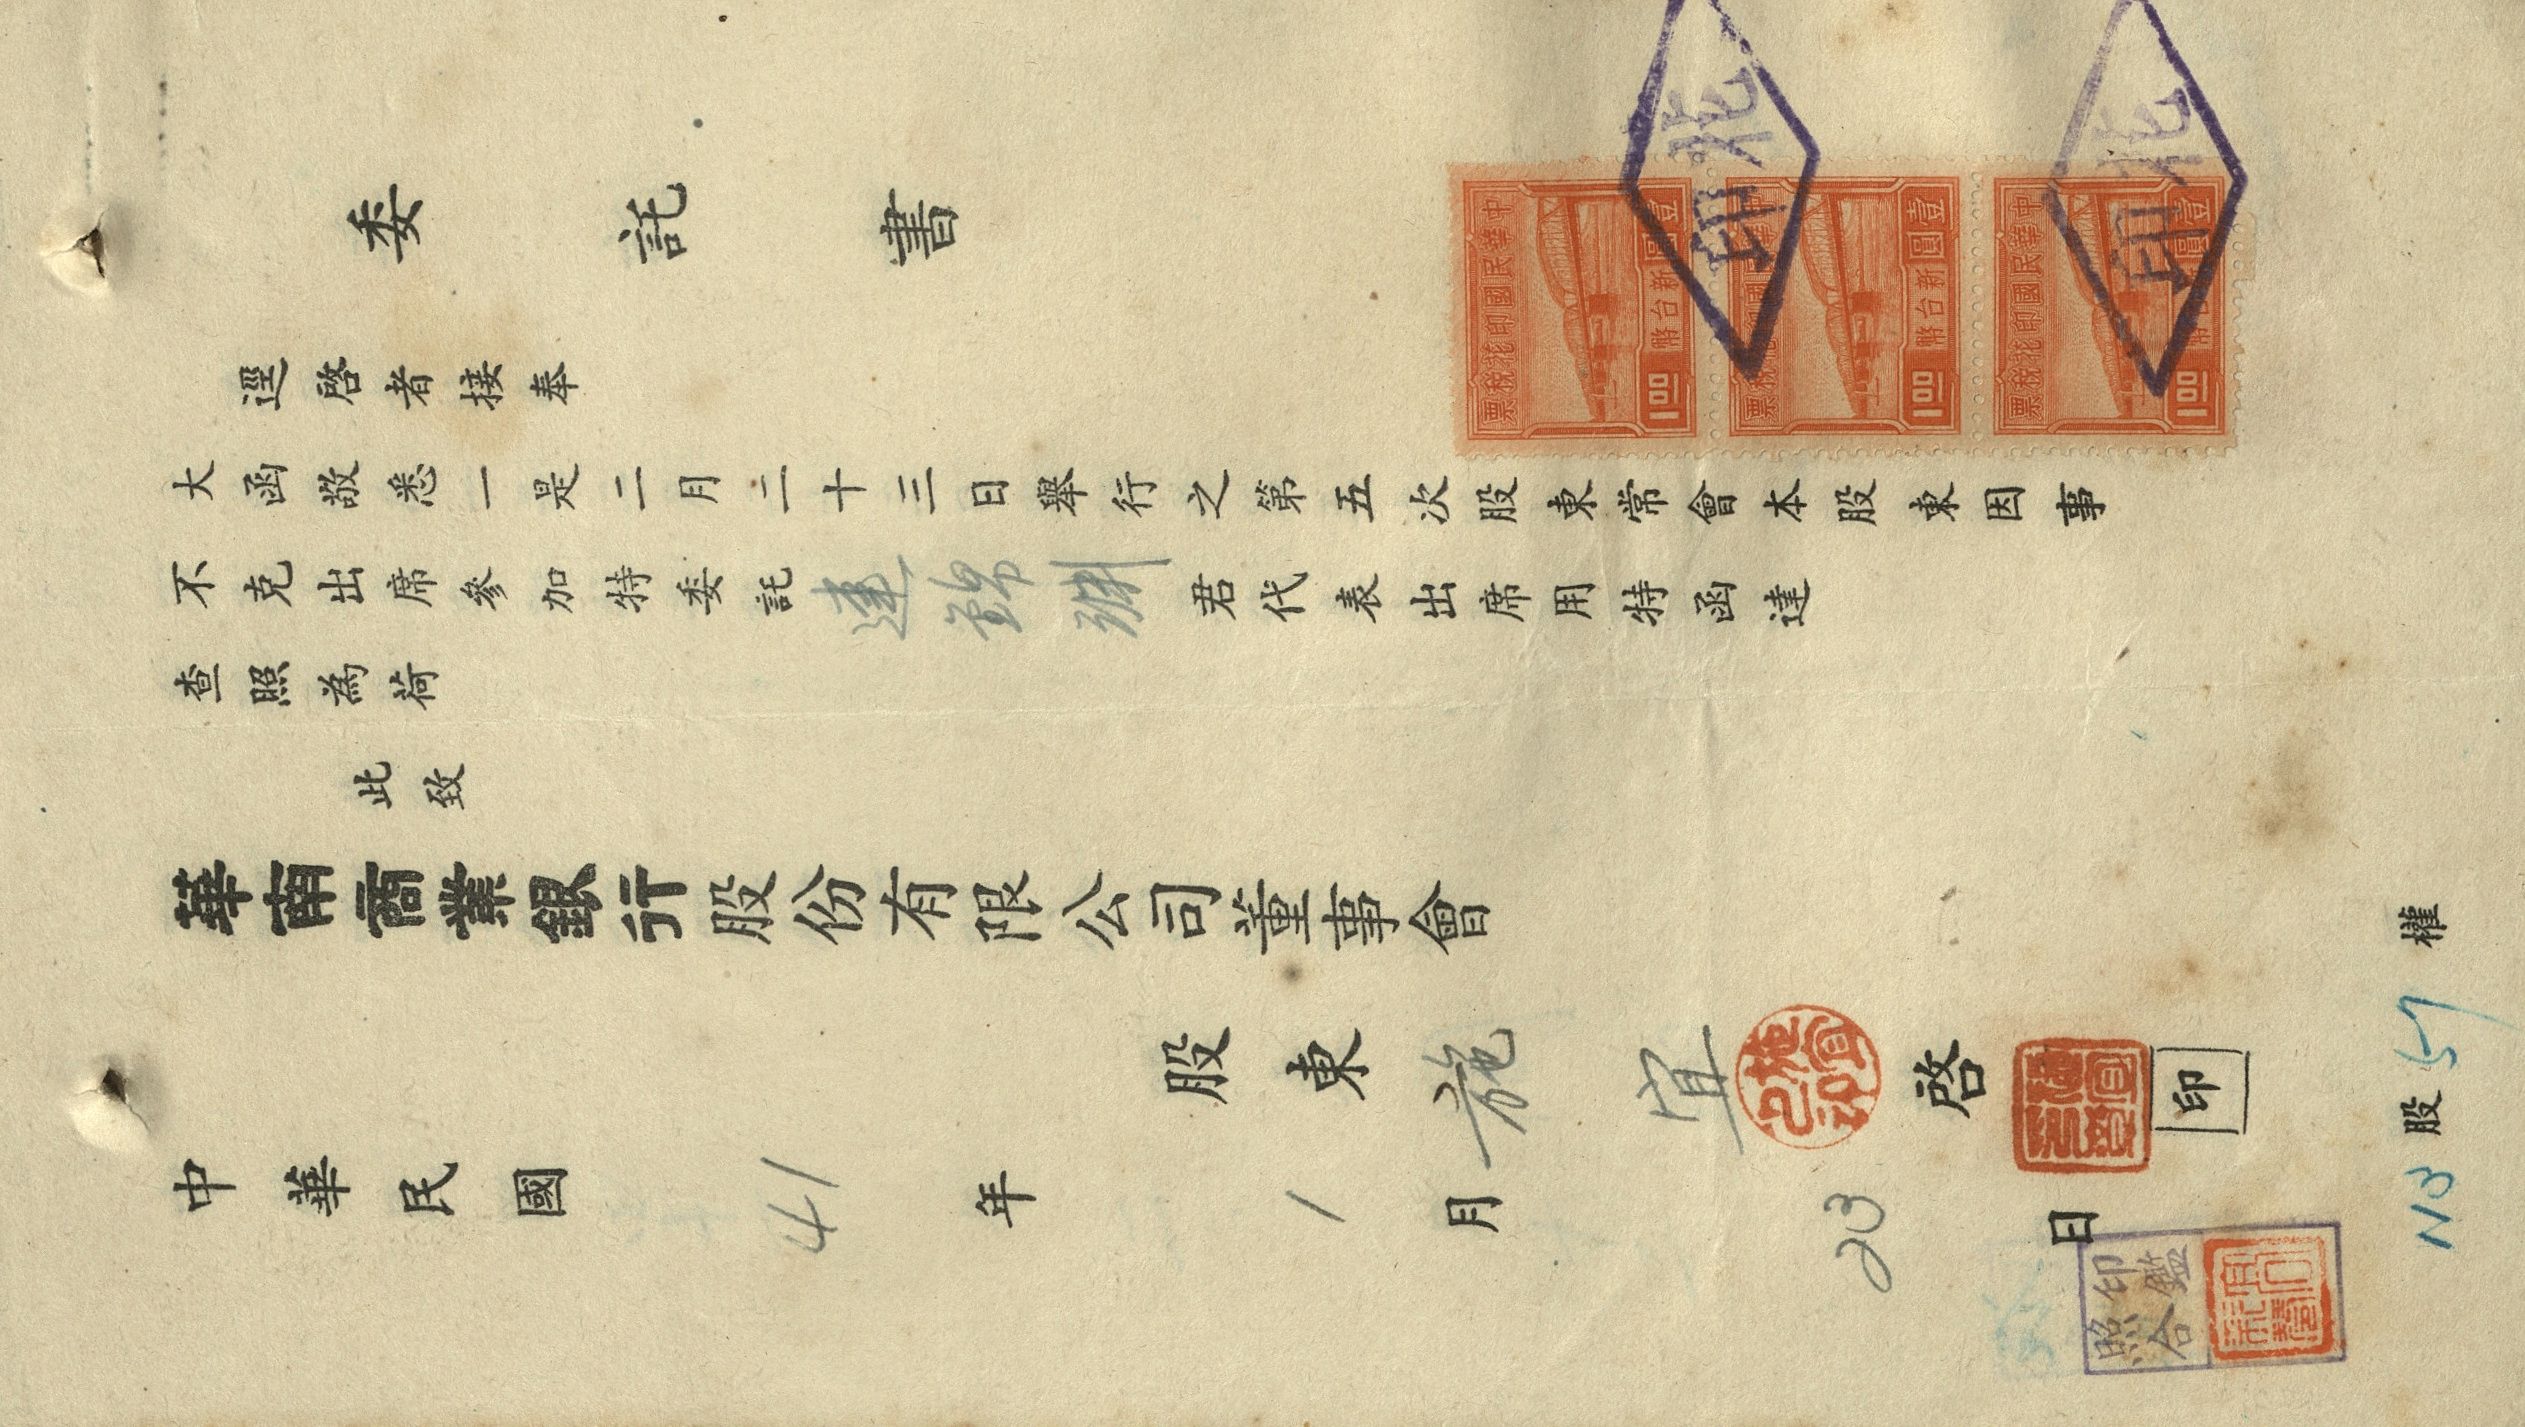 委託書
逕啓者接奉
大函敬悉一是二月二十三日舉行之第五次股東常會本股東因事
不克出席參加特委託連錦淵君代表出席用特函達
查照為荷
此致
華南商業銀行股份有限公司董事會
股東施宜啓
印
中華民國41年1月23日
股57權
中華民國印花稅票
壹圓
新台幣
1.00
中華民國印花稅票
壹圓
新台幣
1.00
中華民國印花稅票
壹圓
新台幣
1.00
印花
印花
印鑑
照合